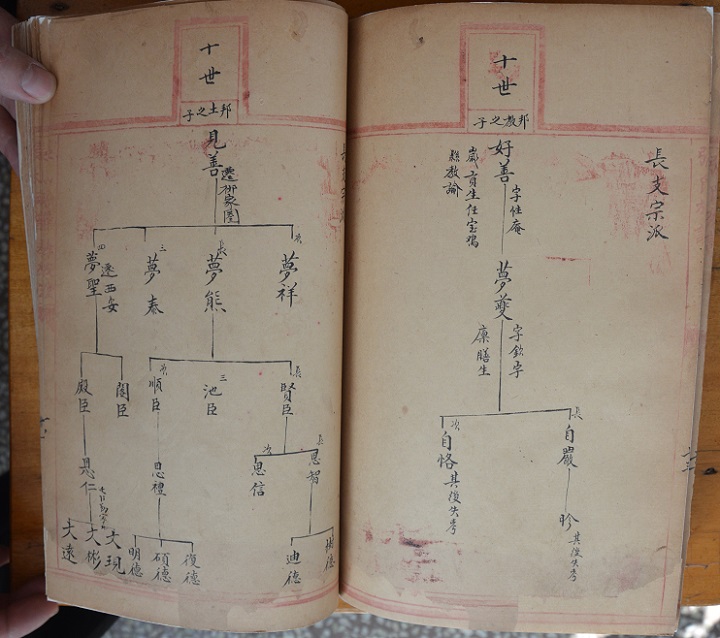 長支宗派
十世
邦教之子
好善
字性庵
歲貢生任宝鸡
縣教諭
夢夔
字欽宇
廩膳生
長
自嚴
昣
其後失考
次
自恪
其後失考
十世
邦土之子
見善
次
夢祥
長
夢熊
三
夢泰
四
夢聖
遷西安
長
賢臣
三
池臣
次
順臣
閣臣
殿臣
長
恩智
次
思信
思禮
恩仁
迪德
復德
碩德
明德
大現
大彬
大遠